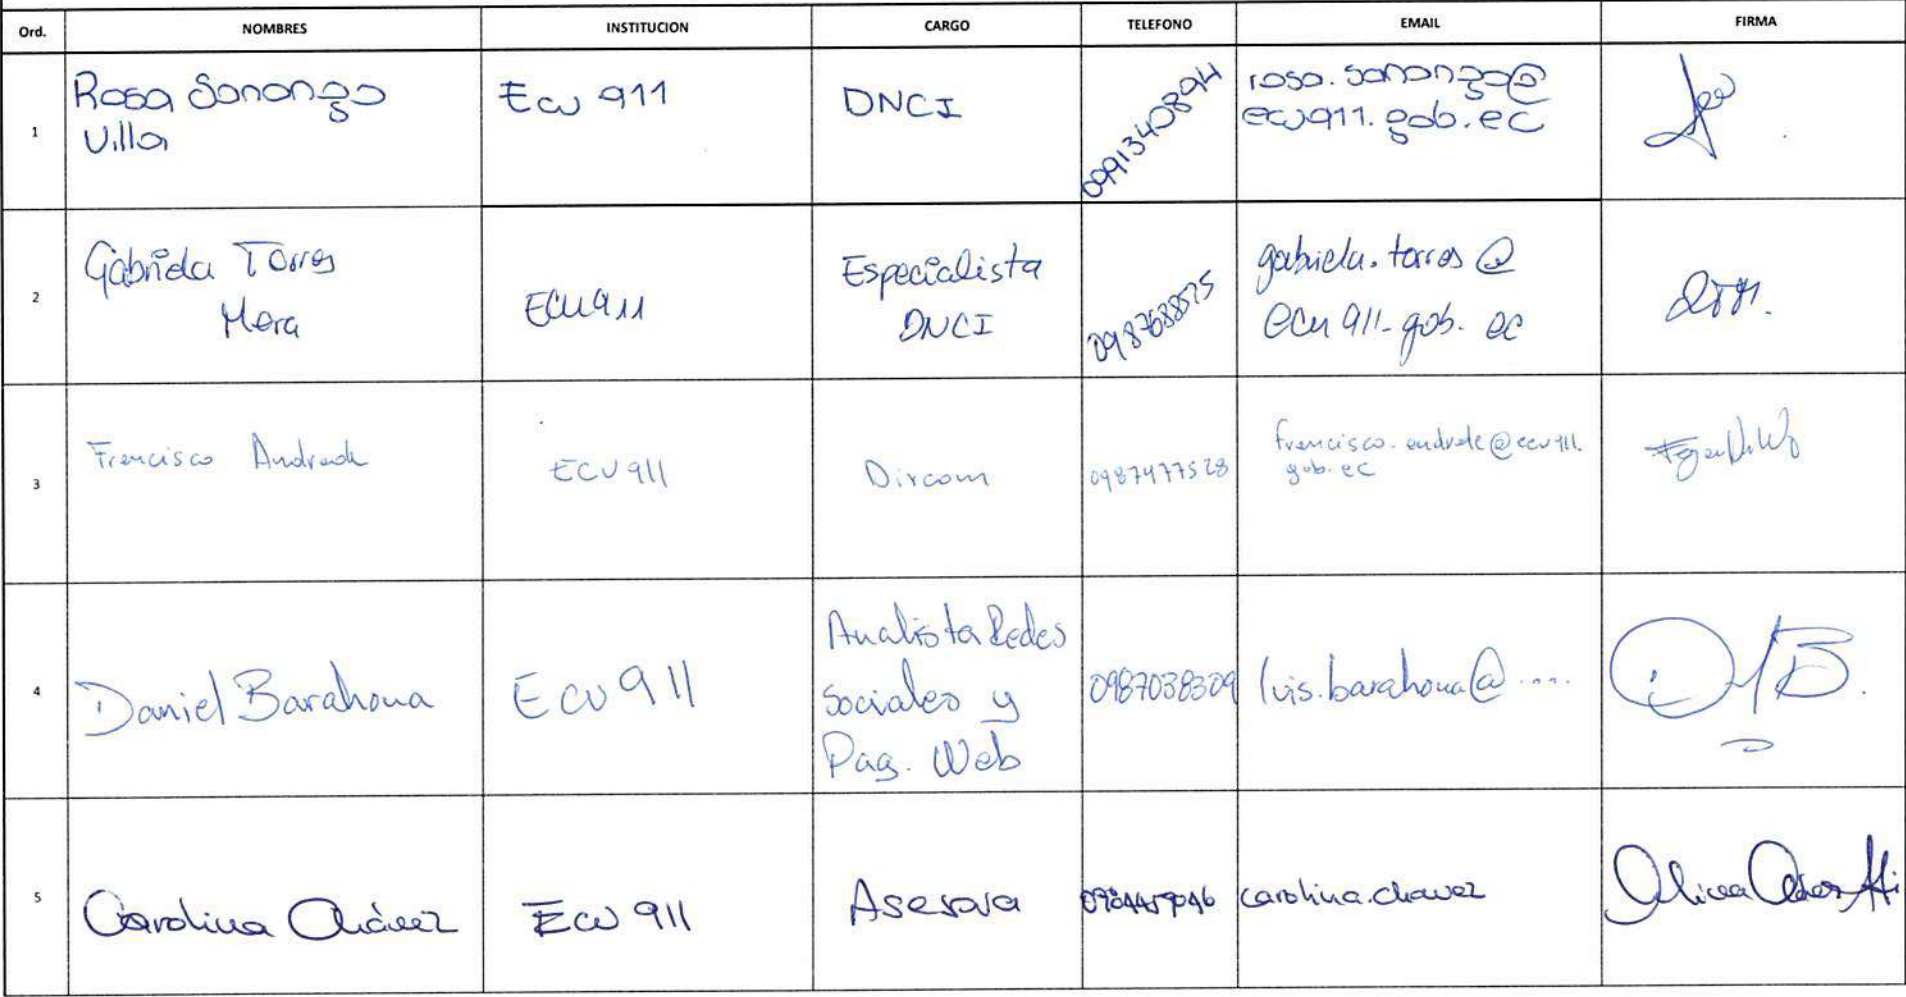 Ord. NOMBRES INSTITUCION CARGO TELEFONO EMAIL FIRMA
1
Rosa Sanango
Villa
Ecu 911
DNCI
0991340894
rosa.sanango@
ecu911.gob.ec
2
Gabriela Torres
Mera
ECU911
Especialista
DNCI
gabriela.torres@
ecu911.gob.ec
3
Francisco Andrade
ECU911
Dircom
0987477528
francisco.andrade@ecu911.
gob.ec
4
Daniel Barahona
Ecu 911
Analista Redes
Sociales y
Pag. Web
0987038309
luis.barahona@....
5
Carolina Chávez
Ecu 911
Asesora
carolina.chavez